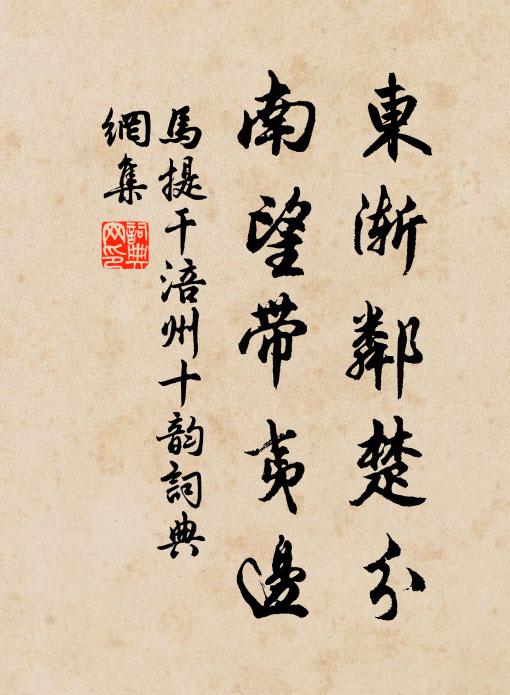 東漸鄰楚分
南望帶夷邊
馬提干涪州十韵詞典
網集
詞典
网印